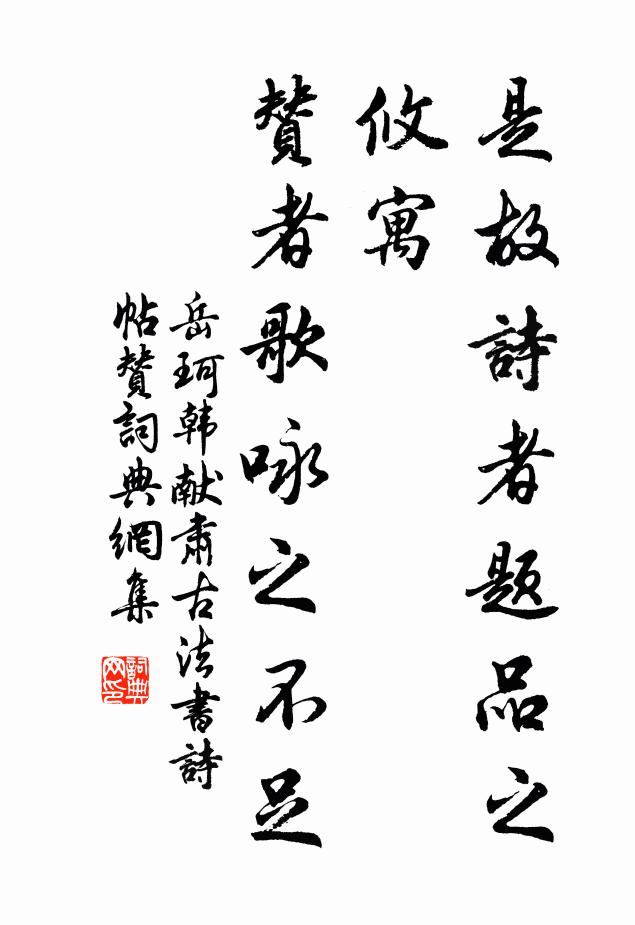 是故詩者題品之
攸寓
賛者歌咏之不足
岳珂韩献肅古法書詩
帖賛詞典網集
詞典网印